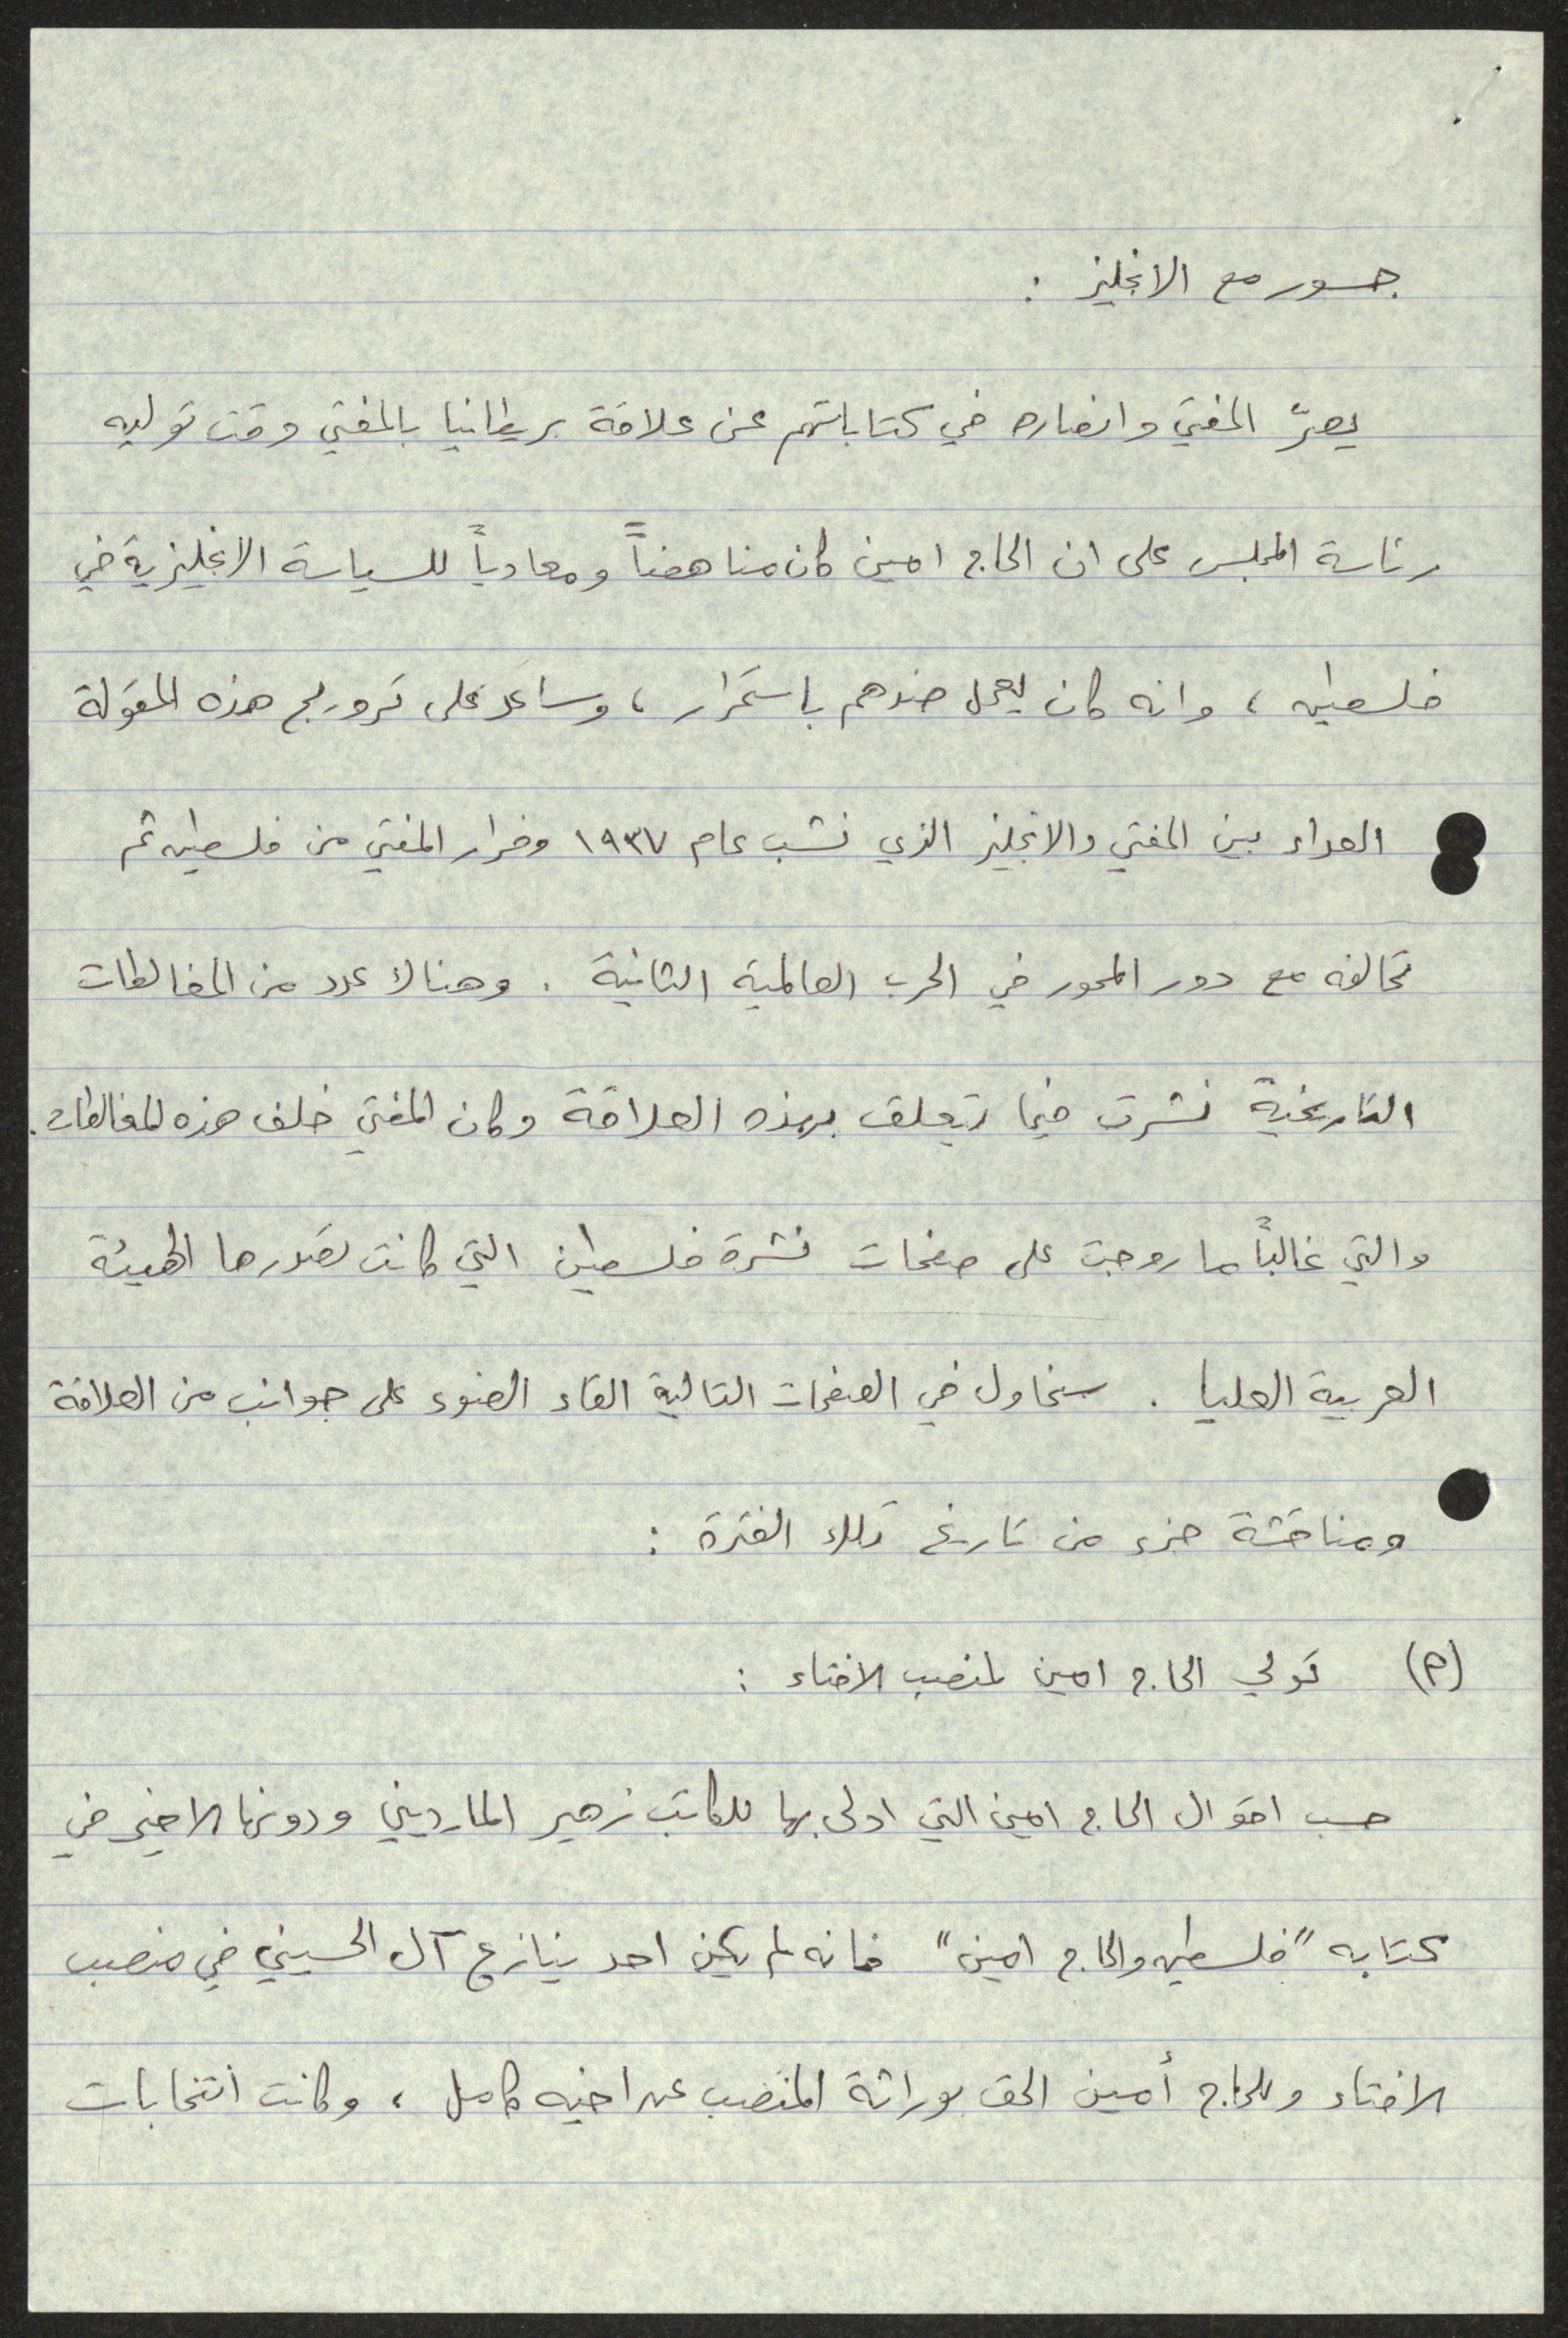 جسور مع الانجليز :
يصرّ المفتي وانصاره في كتاباتهم عن علاقة بريطانيا بالمفتي وقت توليه
رئاسة المجلس على ان الحاج امين كان مناهضاً ومعادياً للسياسة الانجليزية في
فلسطين ، وانه كان يعمل ضدهم باستمرار ، وساعد على ترويج هذه المقولة
العداء بين المفتي والانجليز الذي نشب عام ١٩٣٧ وفرار المفتي من فلسطين ثم
تحالفه مع دور المحور في الحرب العالمية الثانية . وهناك عدد من المغالطات
التاريخية نشرت فيما يتعلق بهذه العلاقة وكان المفتي خلف هذه المغالطات .
والتي غالباً ما روجت على صفحات نشرة فلسطين التي كانت تصدرها الهيئة
العربية العليا . سنحاول في الصفحات التالية القاء الضوء على جوانب من العلاقة
ومناقشة جزء من تاريخ تلك الفترة :
(م) تولي الحاج امين لمنصب الافتاء :
حسب اقوال الحاج امين التي ادلى بها للكاتب زهير المارديني ودونها الاخير في
كتابه "فلسطين والحاج امين" فانه لم يكن احد ينازع آل الحسيني في منصب
الافتاء وللحاج أمين الحق بوراثة المنصب عن اخيه كامل ، وكانت انتخابات